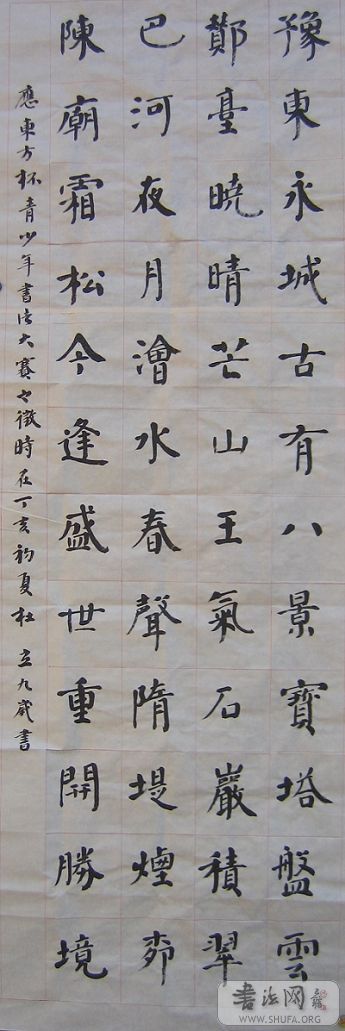 豫東永城古有八景寶塔盤雲
鄭臺曉晴芒山王氣石巖積翠
巴河夜月澮水春聲隋堤煙柳
陳廟霜松今逢盛世重開勝境
應東方杯青少年書法大賽之徵時在丁亥初夏杜立九歲書
書法网
WWW.SHUFA.ORG